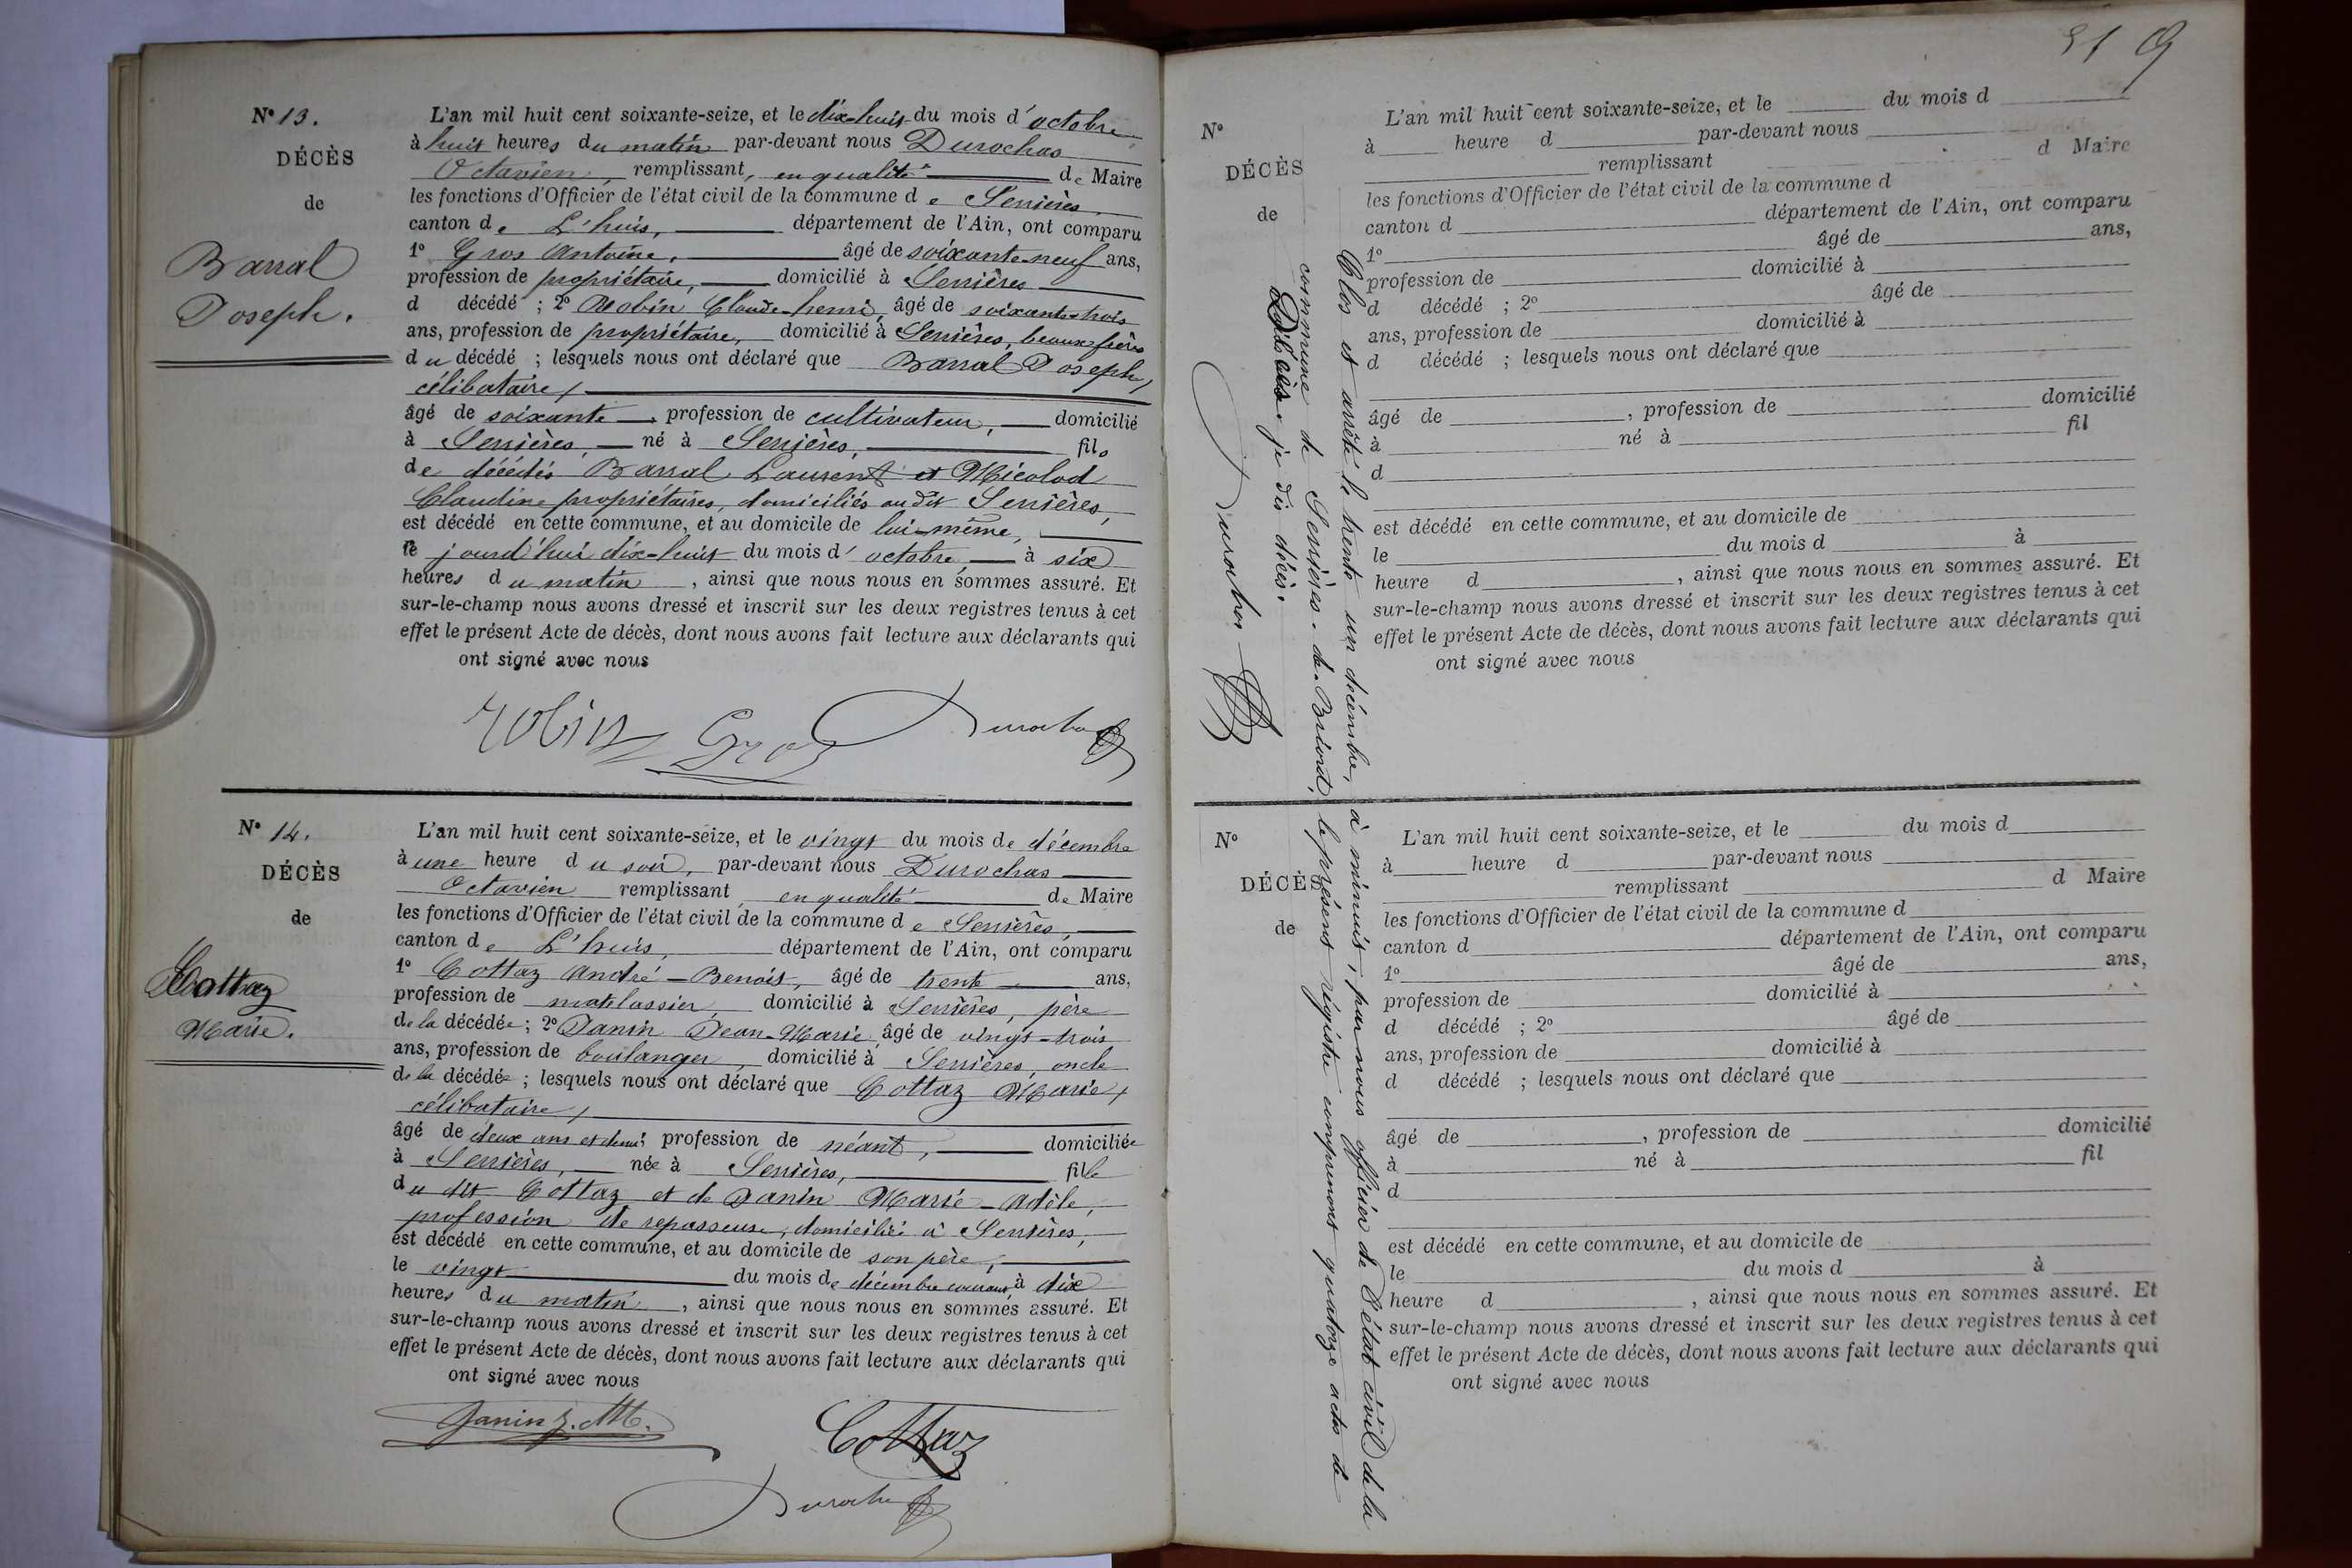 N° 13.
DÉCÈS
de
Barral
Joseph.
L'an mil huit cent soixante-seize, et le dix-huit du mois d'octobre
à huit heures du matin par-devant nous Durochas
Octavien, remplissant, en qualité de Maire
les fonctions d'Officier de l'état civil de la commune de Serrières,
canton de L'huis, département de l'Ain, ont comparu
1° Gros Antoine, âgé de soixante-neuf ans,
profession de propriétaire, domicilié à Serrières
d décédé ; 2° Robin Claude-henri, âgé de soixante-trois
ans, profession de propriétaire, domicilié à Serrières, beaux-frères
du décédé ; lesquels nous ont déclaré que Barral Joseph,
célibataire,
âgé de soixante, profession de cultivateur, domicilié
à Serrières, né à Serrières, fils
de décédés Barral Laurent et Micolod
Claudine propriétaires, domiciliés au dit Serrières,
est décédé en cette commune, et au domicile de lui-même,
le jourd'hui dix-huit du mois d'octobre, à six
heures du matin, ainsi que nous nous en sommes assuré. Et
sur-le-champ nous avons dressé et inscrit sur les deux registres tenus à cet
effet le présent Acte de décès, dont nous avons fait lecture aux déclarants qui
ont signé avec nous
robin Gros Durochas
N° 14.
DÉCÈS
de
Cottaz
Marie.
L'an mil huit cent soixante-seize, et le vingt du mois de décembre
à une heure du soir, par-devant nous Durochas
Octavien remplissant, en qualité de Maire
les fonctions d'Officier de l'état civil de la commune de Serrières,
canton de L'huis, département de l'Ain, ont comparu
1° Cottaz André-Benoit, âgé de trente ans,
profession de matelassier, domicilié à Serrières, père
de la décédée ; 2° Janin Jean-Marie, âgé de vingt-trois
ans, profession de boulanger, domicilié à Serrières, oncle
de la décédée ; lesquels nous ont déclaré que Cottaz Marie,
célibataire,
âgé de deux ans et demi profession de néant, domiciliée
à Serrières, née à Serrières, fille
du dit Cottaz et de Janin Marie-Adèle,
profession de repasseuse, domiciliée à Serrières,
est décédé en cette commune, et au domicile de son père,
le vingt du mois de décembre courant, à dix
heures du matin, ainsi que nous nous en sommes assuré. Et
sur-le-champ nous avons dressé et inscrit sur les deux registres tenus à cet
effet le présent Acte de décès, dont nous avons fait lecture aux déclarants qui
ont signé avec nous
Janin J. M. Cottaz
Durochas
51 9
N°
DÉCÈS
de
L'an mil huit cent soixante-seize, et le du mois d
à heure d par-devant nous
remplissant d Maire
les fonctions d'Officier de l'état civil de la commune d
canton d département de l'Ain, ont comparu
1° âgé de ans,
profession de domicilié à
d décédé ; 2° âgé de
ans, profession de domicilié à
d décédé ; lesquels nous ont déclaré que
âgé de , profession de domicilié
à né à fil
d
est décédé en cette commune, et au domicile de
le du mois d à
heure d , ainsi que nous nous en sommes assuré. Et
sur-le-champ nous avons dressé et inscrit sur les deux registres tenus à cet
effet le présent Acte de décès, dont nous avons fait lecture aux déclarants qui
ont signé avec nous
Clos et arrêté le trente un décembre, à minuit, par nous officier de l'état civil de la
commune de Serrières-de-Briord, le présent régistre comprenant quatorze actes de
Décès. je dis décès.
Durochas
N°
DÉCÈS
de
L'an mil huit cent soixante-seize, et le du mois d
à heure d par-devant nous
remplissant d Maire
les fonctions d'Officier de l'état civil de la commune d
canton d département de l'Ain, ont comparu
1° âgé de ans,
profession de domicilié à
d décédé ; 2° âgé de
ans, profession de domicilié à
d décédé ; lesquels nous ont déclaré que
âgé de , profession de domicilié
à né à fil
d
est décédé en cette commune, et au domicile de
le du mois d à
heure d , ainsi que nous nous en sommes assuré. Et
sur-le-champ nous avons dressé et inscrit sur les deux registres tenus à cet
effet le présent Acte de décès, dont nous avons fait lecture aux déclarants qui
ont signé avec nous